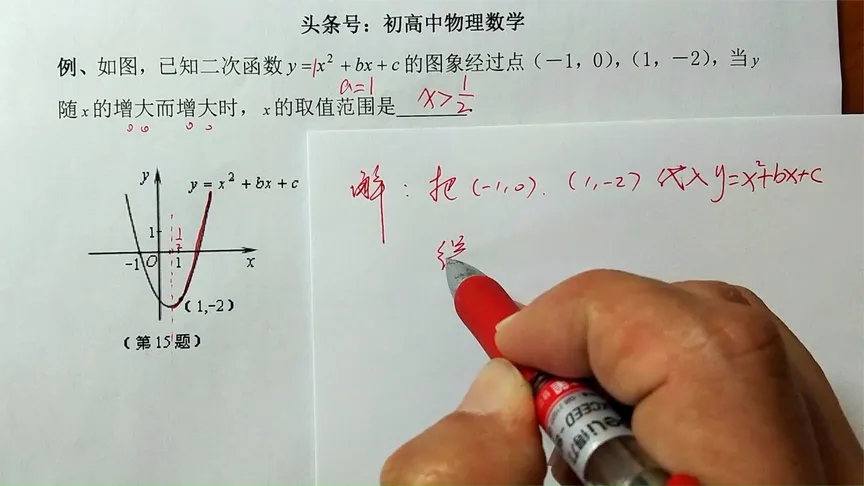 头条号：初高中物理数学
例、如图，已知二次函数 y=1x²+bx+c 的图象经过点（-1，0），（1，-2），当 y
a=1
随 x 的增大而增大时，x 的取值范围是 x>1/2
解：把 (-1,0). (1,-2) 代入 y=x²+bx+c
得
y
y = x² + bx + c
1
-1 O 1 x
(1,-2)
（第15题）
deli得力